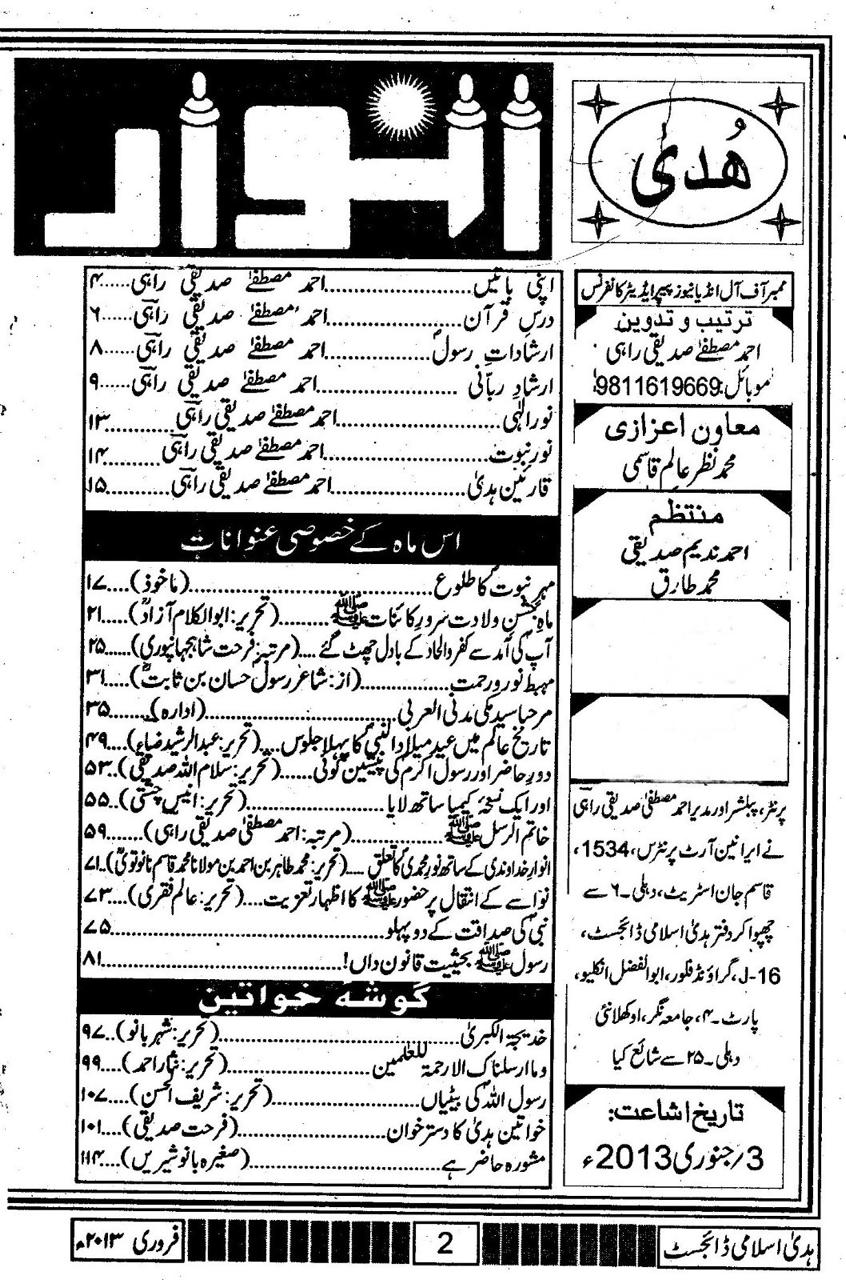 ھُدیٰ
انوار
ممبر آف آل انڈیا نیوز پیپر ایڈیٹر کانفرنس
ترتیب و تدوین
احمد مصطفیٰ صدیقی راہی
موبائل:9811619669
معاون اعزازی
محمد نظر عالم قاسمی
منتظم
احمد ندیم صدیقی
محمد طارق
پرنٹر، پبلشر اور مدیر احمد مصطفیٰ صدیقی راہی
نے ایرانین آرٹ پرنٹرس، 1534،
قاسم جان اسٹریٹ، دہلی۔۶ سے
چھپوا کر دفتر ہدیٰ اسلامی ڈائجسٹ،
J-16، گراؤنڈ فلور، ابوالفضل انکلیو،
پارٹ۔۴، جامعہ نگر، اوکھلا نئی
دہلی۔۲۵ سے شائع کیا
تاریخ اشاعت:
3/جنوری 2013ء
اپنی باتیں......احمد مصطفیٰ صدیقی راہی......۴
درس قرآن......احمد مصطفیٰ صدیقی راہی......۶
ارشادات رسولؐ......احمد مصطفیٰ صدیقی راہی......۸
ارشاد ربانی......احمد مصطفیٰ صدیقی راہی......۹
نور الٰہی......احمد مصطفیٰ صدیقی راہی......۱۳
نور نبوت......احمد مصطفیٰ صدیقی راہی......۱۴
قارئین ہدیٰ......احمد مصطفیٰ صدیقی راہی......۱۵
اس ماہ کے خصوصی عنوانات
مہر نبوت کا طلوع......(ماخوذ)....۱۷
ماہ جشن ولادت سرور کائنات ﷺ......(تحریر: ابوالکلام آزادؒ)....۲۱
آپ کی آمد سے کفر و الحاد کے بادل چھٹ گئے....(مرتبہ: فرحت شاہجہانپوری)....۲۵
مہبط نور و رحمت......(از: شاعر رسول حسان بن ثابتؓ)....۳۱
مرحبا سید مکی مدنی العربی......(ادارہ)......۳۵
تاریخ عالم میں عید میلاد النبیؐ کا پہلا جلوس....(تحریر: عبدالرشید ضیاء)....۴۹
دور حاضر اور رسول اکرمؐ کی پیشین گوئی......(تحریر: سلام اللہ صدیقی)....۵۳
اور ایک نسخہ کیمیا ساتھ لایا......(تحریر: انیس چشتی)....۵۵
خاتم الرسل ﷺ......(مرتبہ: احمد مصطفیٰ صدیقی راہی)....۵۹
انوار خداوندی کے ساتھ نور محمدی کا تعلق....(تحریر: محمد طاہر بن احمد بن مولانا محمد قاسم نانوتویؒ)....۷۱
نواسے کے انتقال پر حضور ﷺ کا اظہار تعزیت......(تحریر: عالم فقری)....۷۳
نبیؐ کی صداقت کے دو پہلو......۷۵
رسول ﷺ بحیثیت قانون داں!......۸۱
گوشہ خواتین
خدیجۃ الکبریٰ......(تحریر: شہر بانو)....۹۷
وما ارسلناک الا رحمۃ للعٰلمین......(تحریر: نثار احمد)....۹۹
رسول اللہؐ کی بیٹیاں......(تحریر: شریف الحسن)....۱۰۷
خواتین ہدیٰ کا دسترخوان......(فرحت صدیقی)....۱۰۱
مشورہ حاضر ہے......(صغیرہ بانو شیریں)....۱۱۴
ہدیٰ اسلامی ڈائجسٹ
2
فروری ۲۰۱۳ء